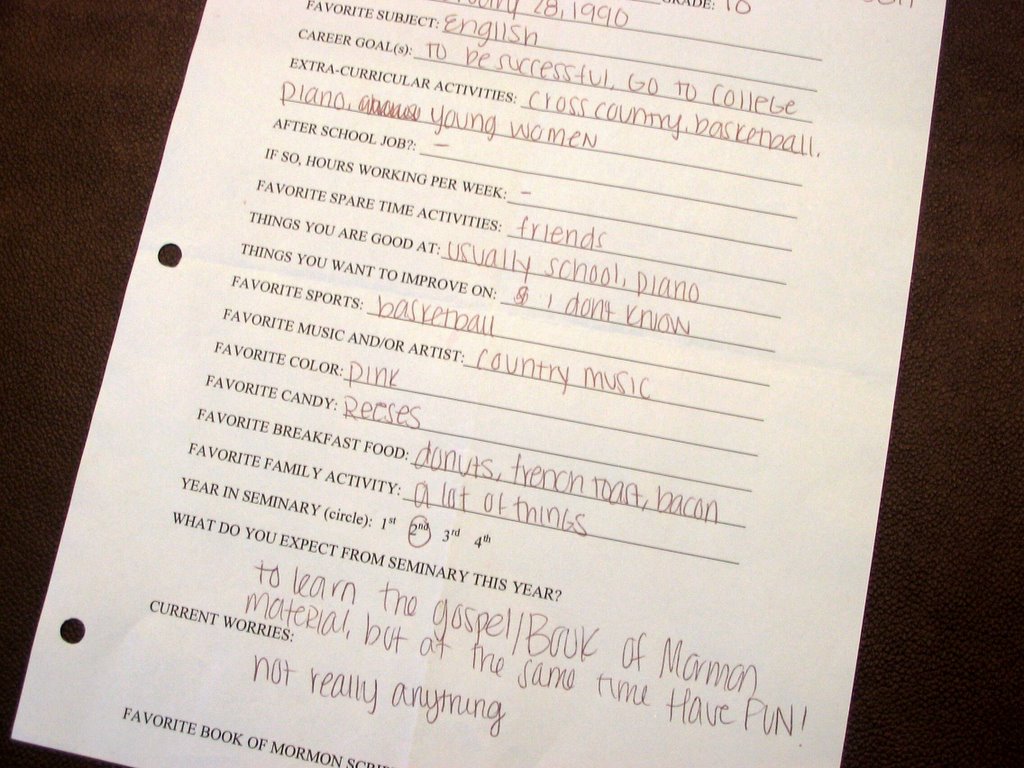 28, 1990 GRADE: 10
FAVORITE SUBJECT: English
CAREER GOAL(s): To be successful, Go To College
EXTRA-CURRICULAR ACTIVITIES: cross country, basketball,
piano, young women
AFTER SCHOOL JOB?: -
IF SO, HOURS WORKING PER WEEK: -
FAVORITE SPARE TIME ACTIVITIES: friends
THINGS YOU ARE GOOD AT: usually school, piano
THINGS YOU WANT TO IMPROVE ON: i don't know
FAVORITE SPORTS: basketball
FAVORITE MUSIC AND/OR ARTIST: country music
FAVORITE COLOR: pink
FAVORITE CANDY: Reeses
FAVORITE BREAKFAST FOOD: donuts, french toast, bacon
FAVORITE FAMILY ACTIVITY: a lot of things
YEAR IN SEMINARY (circle): 1st 2nd 3rd 4th
WHAT DO YOU EXPECT FROM SEMINARY THIS YEAR?
to learn the gospel/Book of Mormon
material, but at the same time Have FUN!
CURRENT WORRIES:
not really anything
FAVORITE BOOK OF MORMON